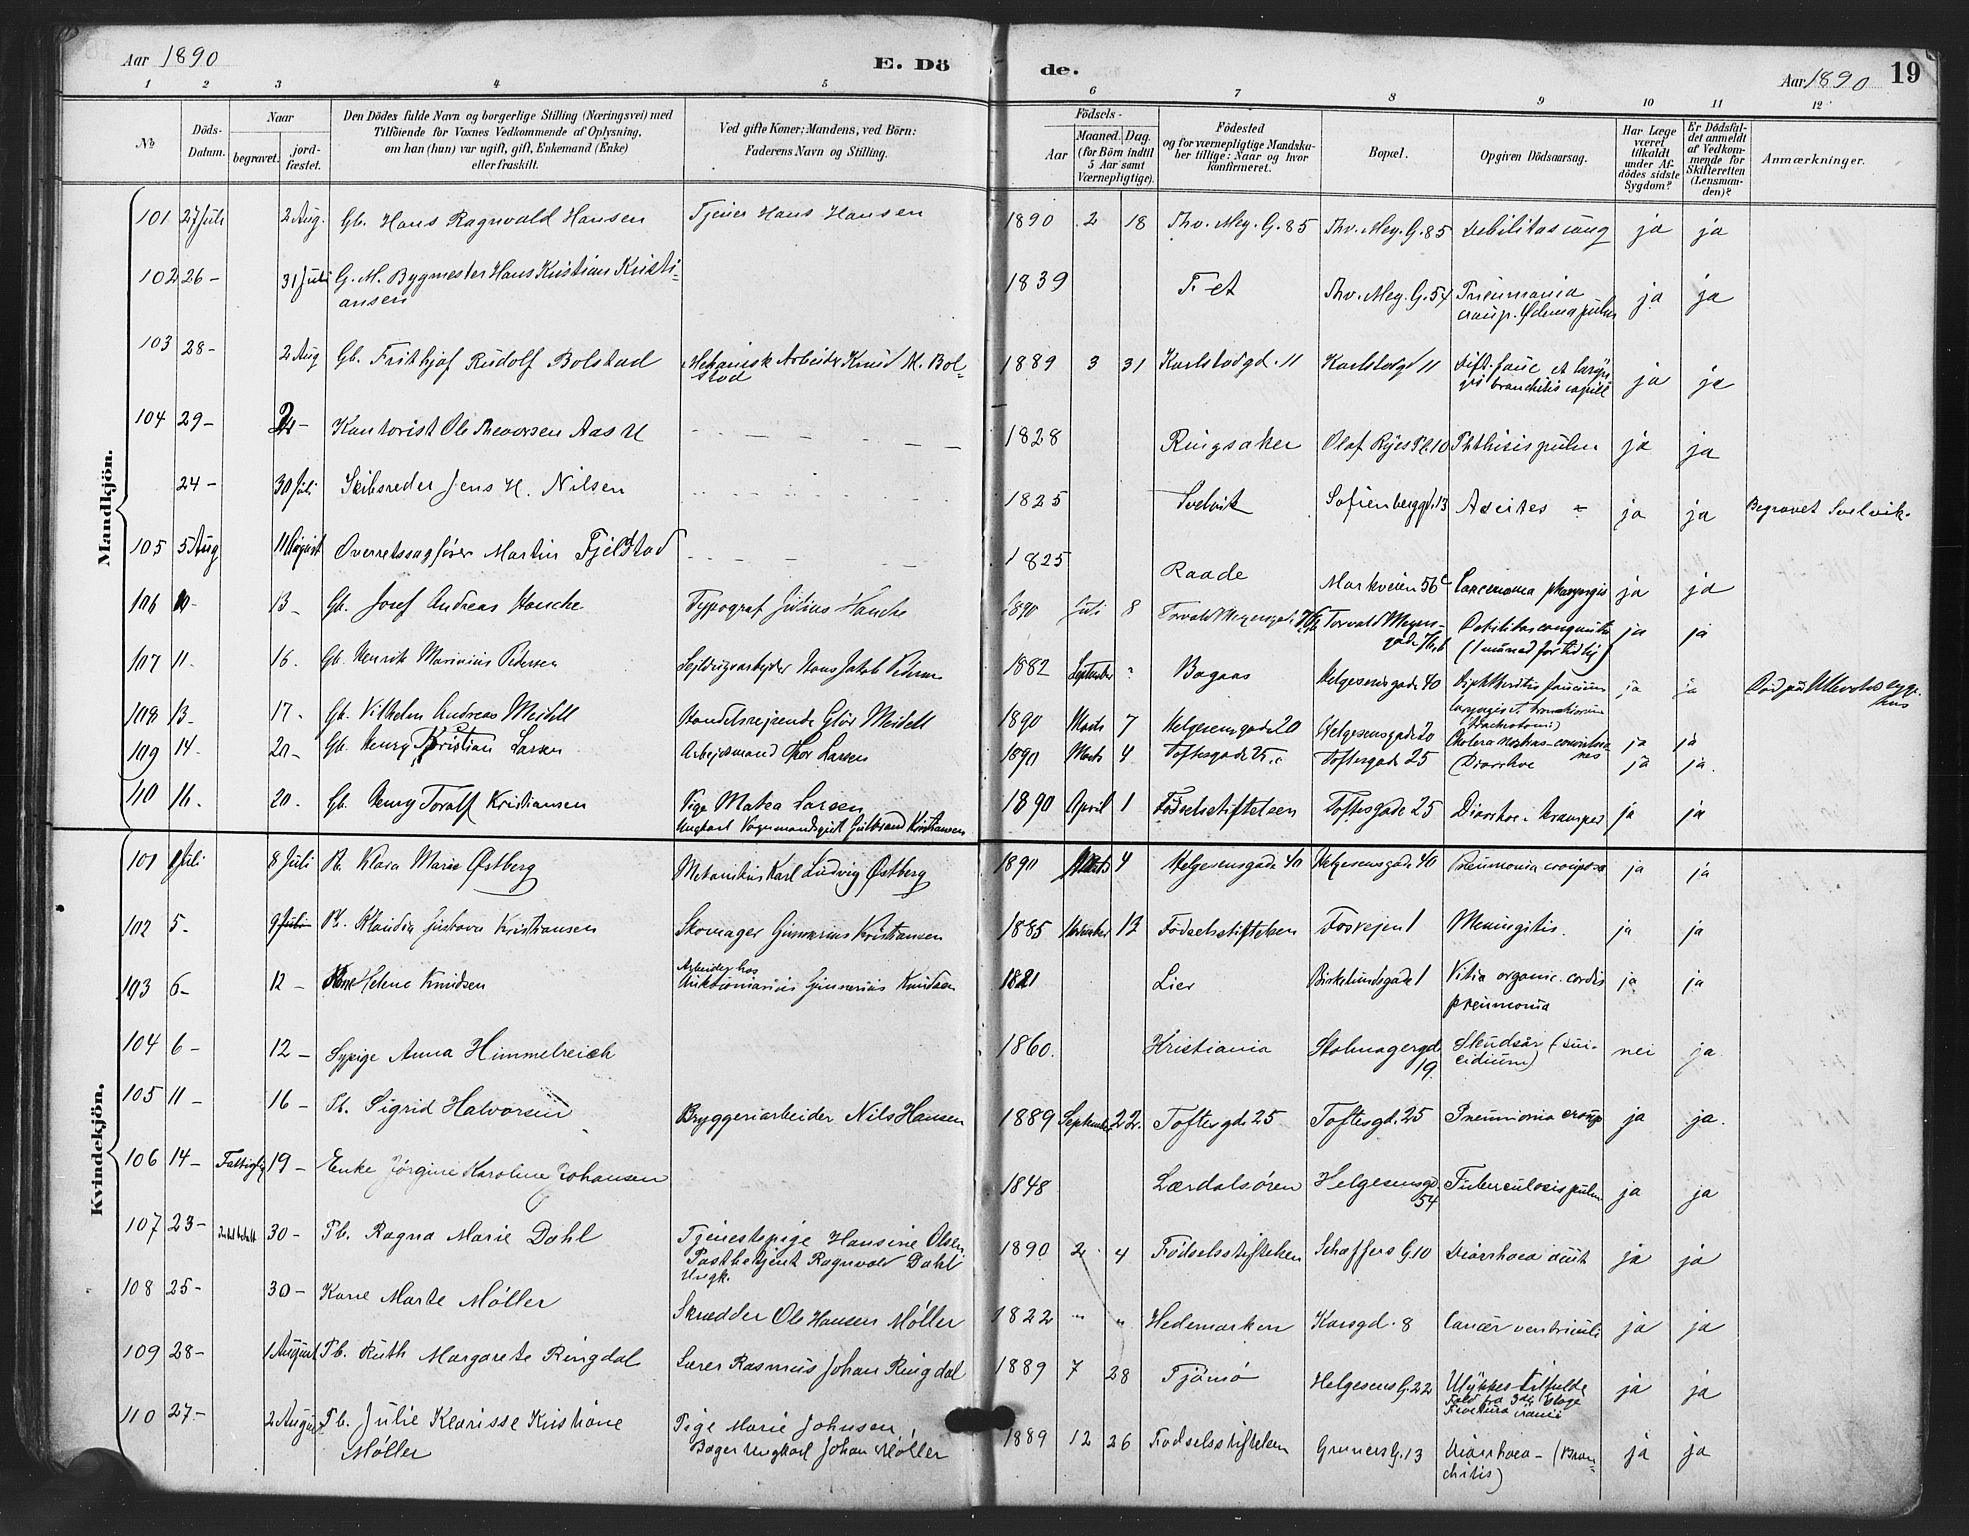 Aar 1890 E. Dö
1 2 3 4 5
No
Döds-Datum.
Naar
begravet. jordfæstet.
Den Dödes fulde Navn og borgerlige Stilling (Næringsvei) med
Tilföiende for Voxnes Vedkommende af Oplysning,
om han (hun) var ugift, gift, Enkemand (Enke)
eller fraskilt.
Ved gifte Koner: Mandens, ved Börn:
Faderens Navn og Stilling.
de. Aar 1890 19
6 7 8 9 10 11 12
Födsels-
Aar
Maaned. Dag.
(for Börn indtil
5 Aar samt
Værnepligtige).
Födested
og for værnepligtige Mandska-
ber tillige: Naar og hvor
konfirmeret.
Bopæl.
Opgiven Dödsaarsag.
Har Læge
været
tilkaldt
under Af-
dödes sidste
Sygdom?
Er Dödsfal-
det anmeldt
af Vedkom-
mende for
Skifteretten
(Lensman-
den)?
Anmærkninger.
Mandkjön.
101 27 Juli 2 Aug. Gb. Hans Ragnvald Hansen Tjener Hans Hansen 1890 2 18 Thv. Mey. G. 85 Thv. Mey. G. 85 Debilitas cong ja ja
102 26 – 31 Juli G. M. Bygmester Hans Kristian Kristi-
ansen 1839 Fet Thv. Mey. G. 54 Pneumonia
croup. Ødema pulm ja ja
103 28 – 2 Aug Gb. Frithjof Rudolf Bolstad Mekanisk Arbeider Knud M. Bol-
stad 1889 3 31 Karlstadgd. 11 Karlstadgd 11 Dift. fauc et laryn
gis bronchitis capill ja ja
104 29 – 2 – Kontorist Ole Thevorsen Aas 1828 Ringsaker Olaf Ryes Pl. 10 Phthisis pulm ja ja
24 – 30 Juli Skibsreder Jens H. Nilsen 1825 Svelvik Sofienberggd. 13 Ascites ja ja Begravet Svelvik.
105 5 Aug 11 August Overretssagfører Martin Fjeldstad 1825 Raade Markveien 56 c Carcinoma pharyngis ja ja
106 10 – 13 – Gb. Josef Andreas Hansche Typograf Julius Hansche 1890 Juli 8 Torvald Meyersgade 76b Torvald Meyers-
gade 76b Debilitas congenita
(1 maaned for tidlig) ja ja
107 11. 16. Gb. Henrik Marinius Petersen Sejldugsarbejder Hans Jakob Petersen 1882 September " Bagaas Helgesensgade 40 Diphtheritis faucium
laryngis et bronchiorum
(Tracheotomi) ja ja Død paa Ullevolds syge-
hus
108 13. 17. Gb. Vilhelm Andreas Meidell Handelsrejsende Glör Meidell 1890 Marts 7 Helgesensgade 20 Helgesensgade 20 Cholera nostras – convulsio
nes ja ja
109 14. 20 – Gb. Henry Kristian Larsen Arbejdsmand Thor Larsen 1890 Marts 4 Toftesgade 25 Toftesgade 25 Diarrhoe ja ja.
110 16. 20. Gb. Henry Toralf Kristiansen Pige Matea Larsen
Ungkarl Vognmandsgut Gulbrand Kristiansen 1890 April 1 Fødselsstiftelsen Toftesgade 25 Diarrhoe. Kramper ja ja
Kvindekjön.
101 1 Juli 8 Juli Pb. Klara Marie Østberg Mekanikus Karl Ludvig Østberg 1890 Marts 4 Helgesensgade 40 Helgesensgade 40 Pneumonia crouposa ja ja
102 5 – 9 Juli Pb. Klaudia Gustava Kristiansen Skomager Gunnerius Kristiansen 1885 12 Fødselsstiftelsen Fosvejen 1 Meningitis. ja ja
103 6 – 12 – Kone Helene Knudsen Arbeider hos
Auktionarius Gunnerius Knudsen 1821 Lier Birkelundsgade 1 Vitia organic. cordis
pneumonia ja ja
104 6 – 12 – Sypige Anna Himmelreich 1860. Kristiania Stolmagergd.
19. Skudsår (sui-
cidium) nei ja
105 11 – 16 – Pb. Sigrid Halvorsen Bryggeriarbeider Nils Hansen 1889 September 22. Toftesgd. 25 Toftesgd. 25 Pneumonia croup ja ja.
106 14 – Fattiglig 19 – Enke Jørgine Karoline Johansen 1848 Lærdalsören Helgesensgd.
54 Tuberculosis pulm ja ja
107 23 – 30 – Pb. Ragna Marie Dahl Tjenestepige Hansine Olsen
Postbetjent Ragnvald Dahl
Ungk. 1890 2 4 Fødselsstiftelsen Schæffers G. 10 Diarrhoea acut ja ja
108 25 – 30 – Kone Marte Møller Skrædder Ole Hansen Møller 1822 " " Hedemarken Korsgd. 8 Cancer ventriculi ja ja
109 28 – 1 August Pb. Ruth Margarete Ringdal Lærer Rasmus Johan Ringdal 1889 7 28 Tjömö Helgesens G. 22 Ulykkestilfælde
Fald fra 3de Etage
Fractura cranii ja ja
110 27 – 2 August Pb. Julie Klarisse Kristine
Møller Pige Marie Johnsen
Bager Ungkarl Johan Møller 1889 12 26 Fødselsstiftelsen Gruners G. 13 Diarrhoea – (Bron-
chitis) ja ja